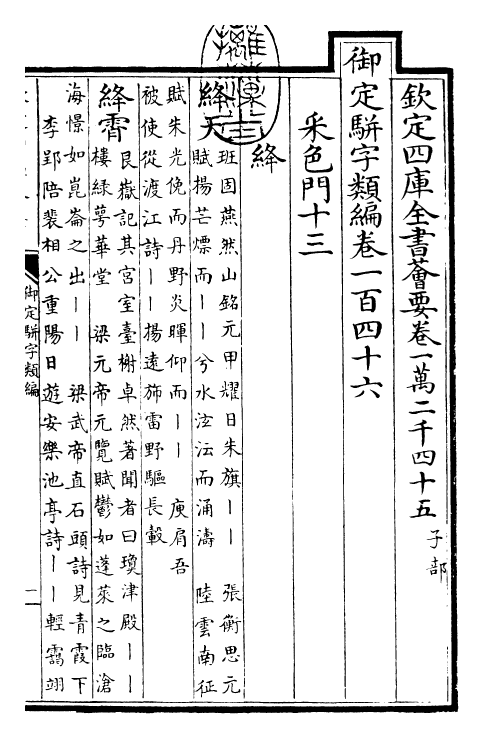 欽定四庫全書薈要卷一萬二千四十五 子部
御定駢字類編卷一百四十六
采色門十三
絳
絳天 班固燕然山銘元甲耀日朱旗丨丨 張衡思元
賦揚芒熛而丨丨兮水泫沄而涌濤 陸雲南征
賦朱光俛而丹野炎暉仰而丨丨 庾肩吾
被使從渡江詩丨丨揚遠斾雷野驅長轂
絳霄 艮嶽記其宮室臺榭卓然著聞者曰瓊津殿丨丨
樓綠萼華堂 梁元帝元覽賦鬱如蓬萊之臨滄
海憬如崑崙之出丨丨 梁武帝直石頭詩見青霞下
李郢陪裴相公重陽日遊安樂池亭詩丨丨輕靄翊
御定駢字類編
一